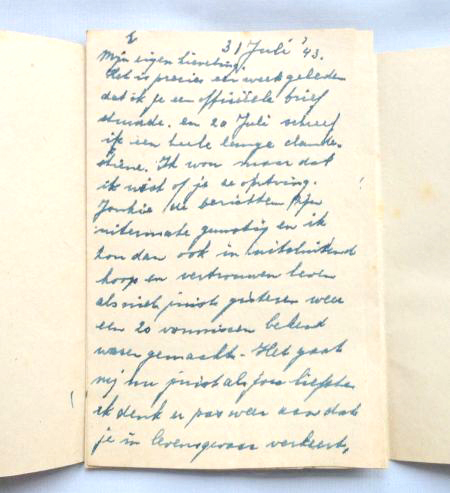 31 Juli '43.
Mijn eigen lieveling,
Het is precies een week geleden
dat ik je een officiële brief
stuurde. en 20 Juli schreef
ik een heele lange clande-
stiene. Ik wou maar dat
ik wist of je ze ontving.
Jonkie de berichten zijn
uitermate gunstig en ik
kon dan ook in uitsluitend
hoop en vertrouwen leven
als niet juist gisteren weer
een 20 vonnissen bekend
waren gemaakt. Het gaat
mij nu juist als jou liefste
ik denk er pas weer aan dat
je in levensgevaar verkeert,